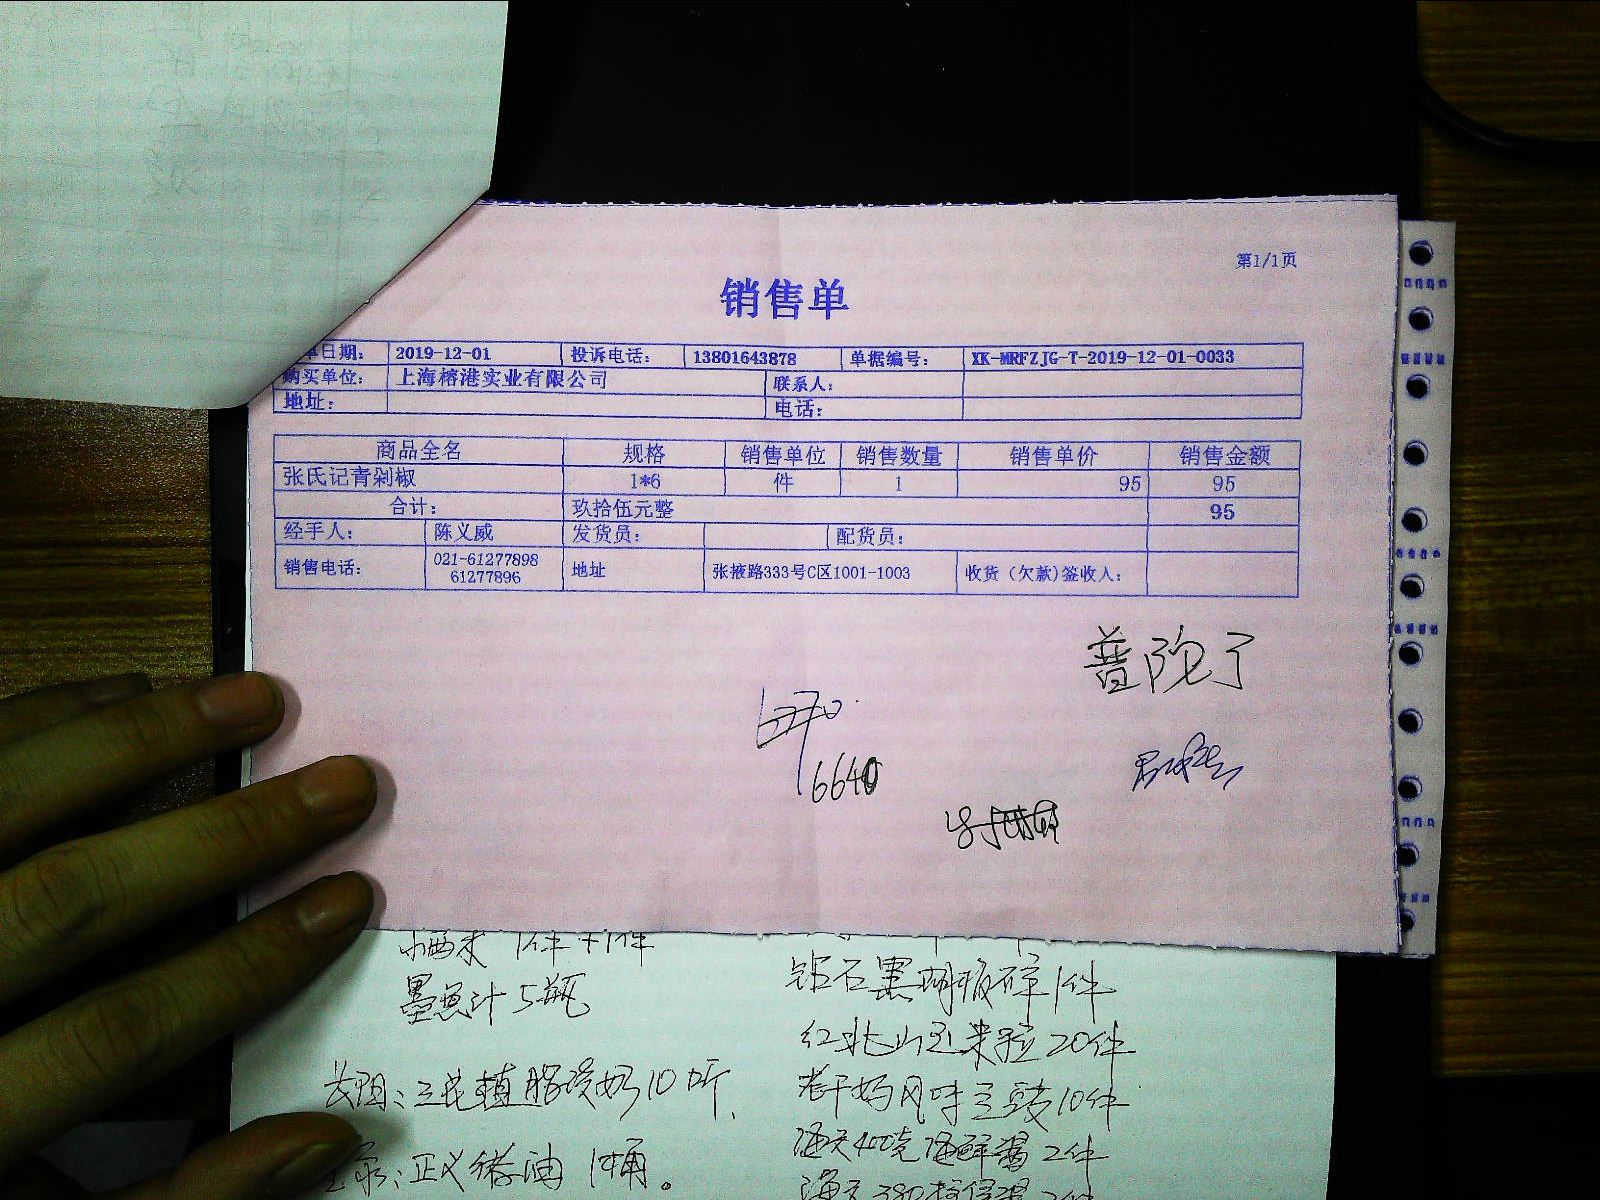 第1/1页
销售单
单日期： 2019-12-01 投诉电话： 13801643878 单据编号： XK-MRFZJG-T-2019-12-01-0033
购买单位： 上海榕港实业有限公司 联系人：
地址： 电话：
商品全名 规格 销售单位 销售数量 销售单价 销售金额
张氏记青剁椒 1*6 件 1 95 95
合计： 玖拾伍元整 95
经手人： 陈义威 发货员： 配货员：
销售电话： 021-61277898 61277896 地址 张掖路333号C区1001-1003 收货（欠款)签收人：
普陀了
6640
小西米 1件+1件
墨鱼汁5瓶
钻石黑胡椒碎1件
红北山玉米粒20件
老干妈风味豆豉10件
三花植脂淡奶10听
海天400克海鲜酱2件
正义猪油1桶。